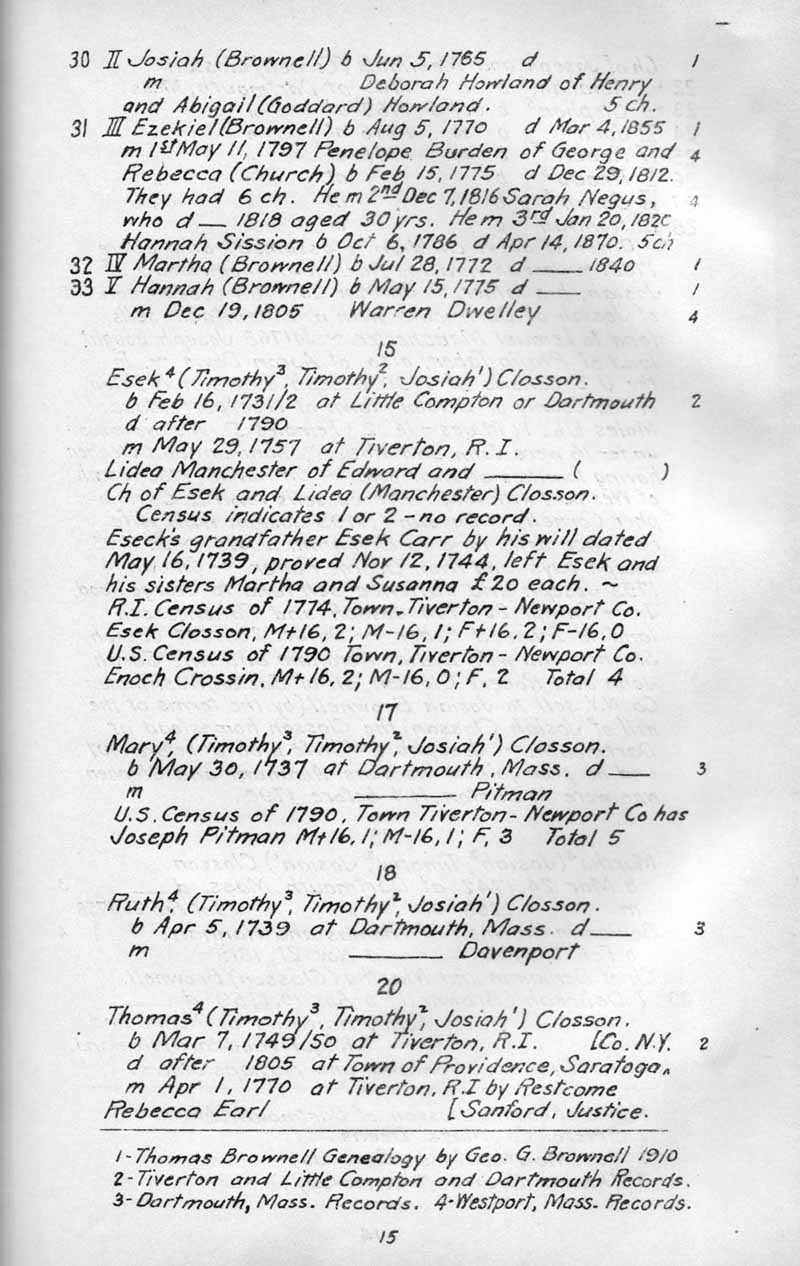 30 II Josiah (Brownell) b Jun 5, 1765 d 1
m Deborah Howland of Henry
and Abigail (Goddard) Howland. 5 ch.
31 III Ezekiel (Brownell) b Aug 5, 1770 d Mar 4, 1855 1
m 1st May 11, 1797 Penelope Burden of George and 4
Rebecca (Church) b Feb 15, 1775 d Dec 29, 1812.
They had 6 ch. He m 2nd Dec 7, 1816 Sarah Negus, 4
who d __ 1818 aged 30 yrs. He m 3rd Jan 20, 1820
Hannah Sission b Oct 6, 1786 d Apr 14, 1870. 5ch
32 IV Martha (Brownell) b Jul 28, 1772 d ____ 1840 1
33 V Hannah (Brownell) b May 15, 1775 d ____ 1
m Dec 19, 1805 Warren Dwelley 4
15
Esek⁴ (Timothy³, Timothy², Josiah¹) Closson.
b Feb 16, 1731/2 at Little Compton or Dartmouth 2
d after 1790
m May 29, 1757 at Tiverton, R. I.
Lidea Manchester of Edward and ______ ( )
Ch of Esek and Lidea (Manchester) Closson.
Census indicates 1 or 2 - no record.
Eseck's grandfather Esek Carr by his will dated
May 16, 1739, proved Nov 12, 1744, left Esek and
his sisters Martha and Susanna £20 each. ~
R.I. Census of 1774, Town, Tiverton - Newport Co.
Esek Closson, M+16, 2; M-16, 1; F+16, 2; F-16, 0
U.S. Census of 1790 Town, Tiverton - Newport Co.
Enoch Crossin, M+16, 2; M-16, 0; F, 2 Total 4
17
Mary⁴, (Timothy³, Timothy², Josiah¹) Closson.
b May 30, 1737 at Dartmouth, Mass. d ___ 3
m ________ Pitman
U.S. Census of 1790, Town Tiverton - Newport Co has
Joseph Pitman M+16, 1; M-16, 1; F, 3 Total 5
18
Ruth⁴, (Timothy³, Timothy², Josiah¹) Closson.
b Apr 5, 1739 at Dartmouth, Mass. d ___ 3
m ________ Davenport
20
Thomas⁴ (Timothy³, Timothy², Josiah¹) Closson.
b Mar 7, 1749/50 at Tiverton, R.I. [Co. N.Y. 2
d after 1805 at Town of Providence, Saratoga ʌ
m Apr 1, 1770 at Tiverton, R.I by Restcome
Rebecca Earl [Sanford, Justice.
1-Thomas Brownell Genealogy by Geo. G. Brownell 1910
2-Tiverton and Little Compton and Dartmouth Records.
3-Dartmouth, Mass. Records. 4-Westport, Mass. Records.
15